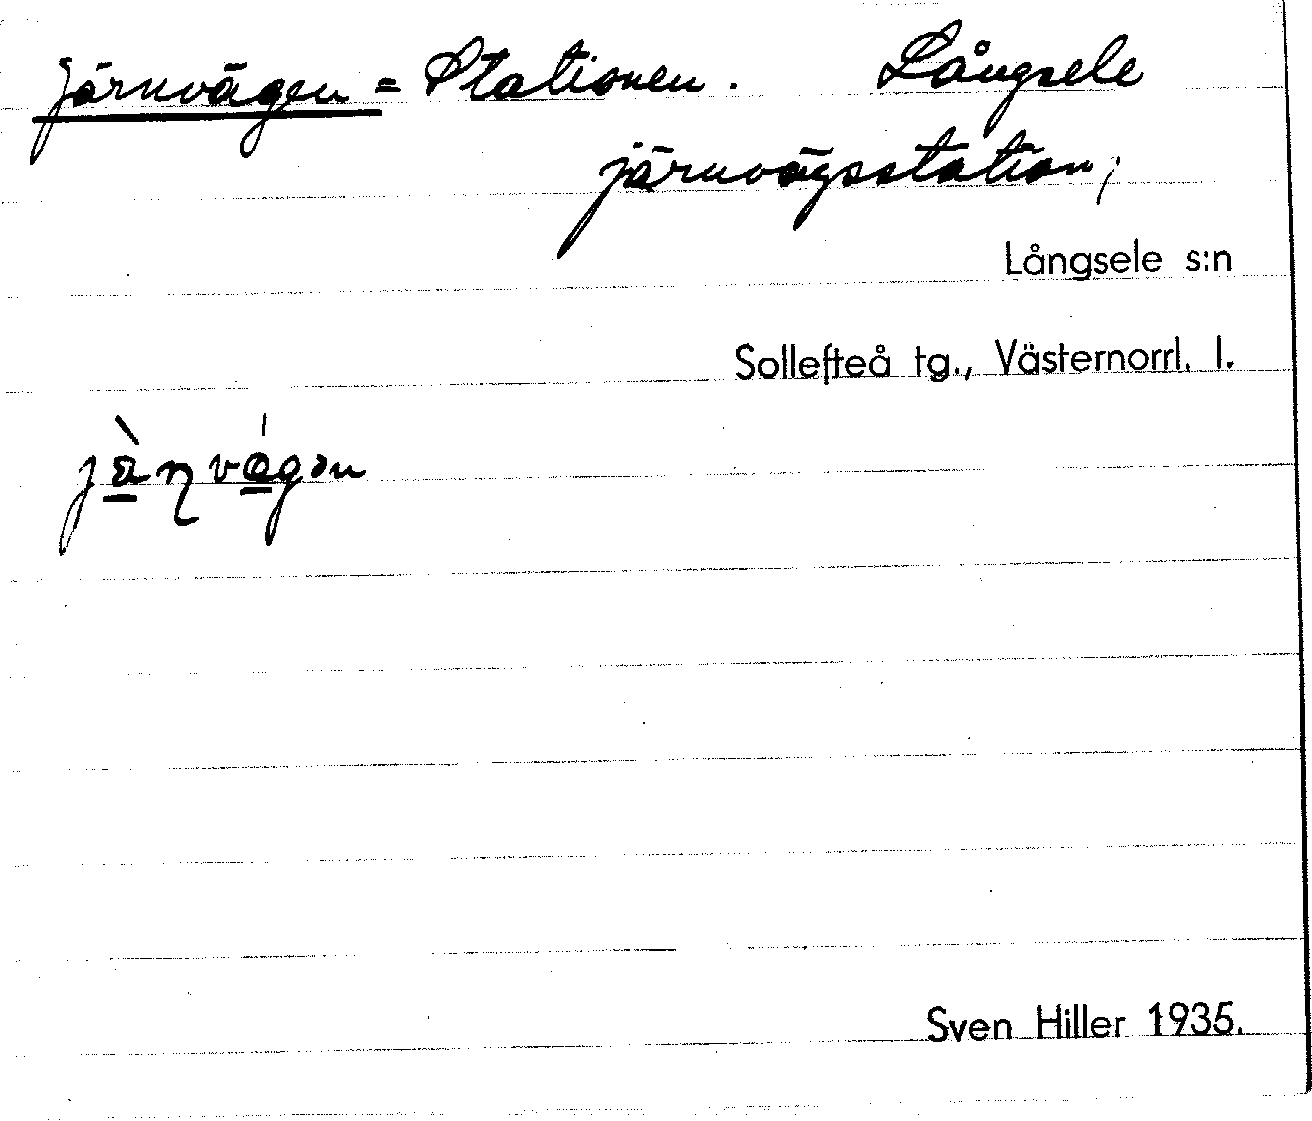 Järnvägen = Stationen. Långsele
järnvägsstation,
Långsele s:n
Sollefteå tg., Västernorrl. l.
Sven Hiller 1935.